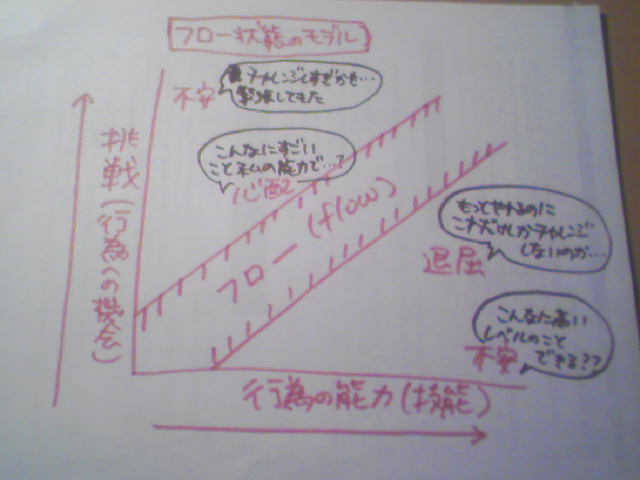 フロー状態のモデル
不安
チャレンジしすぎかも…
緊張してきた
こんなにすごい
こと私の能力で…?
心配
挑戦(行為への機会)
フロー(flow)
もっとやれるのに
これだけしかチャレンジ
しないのか…
退屈
こんなに高い
レベルのこと
できる??
不安
行為の能力(技能)